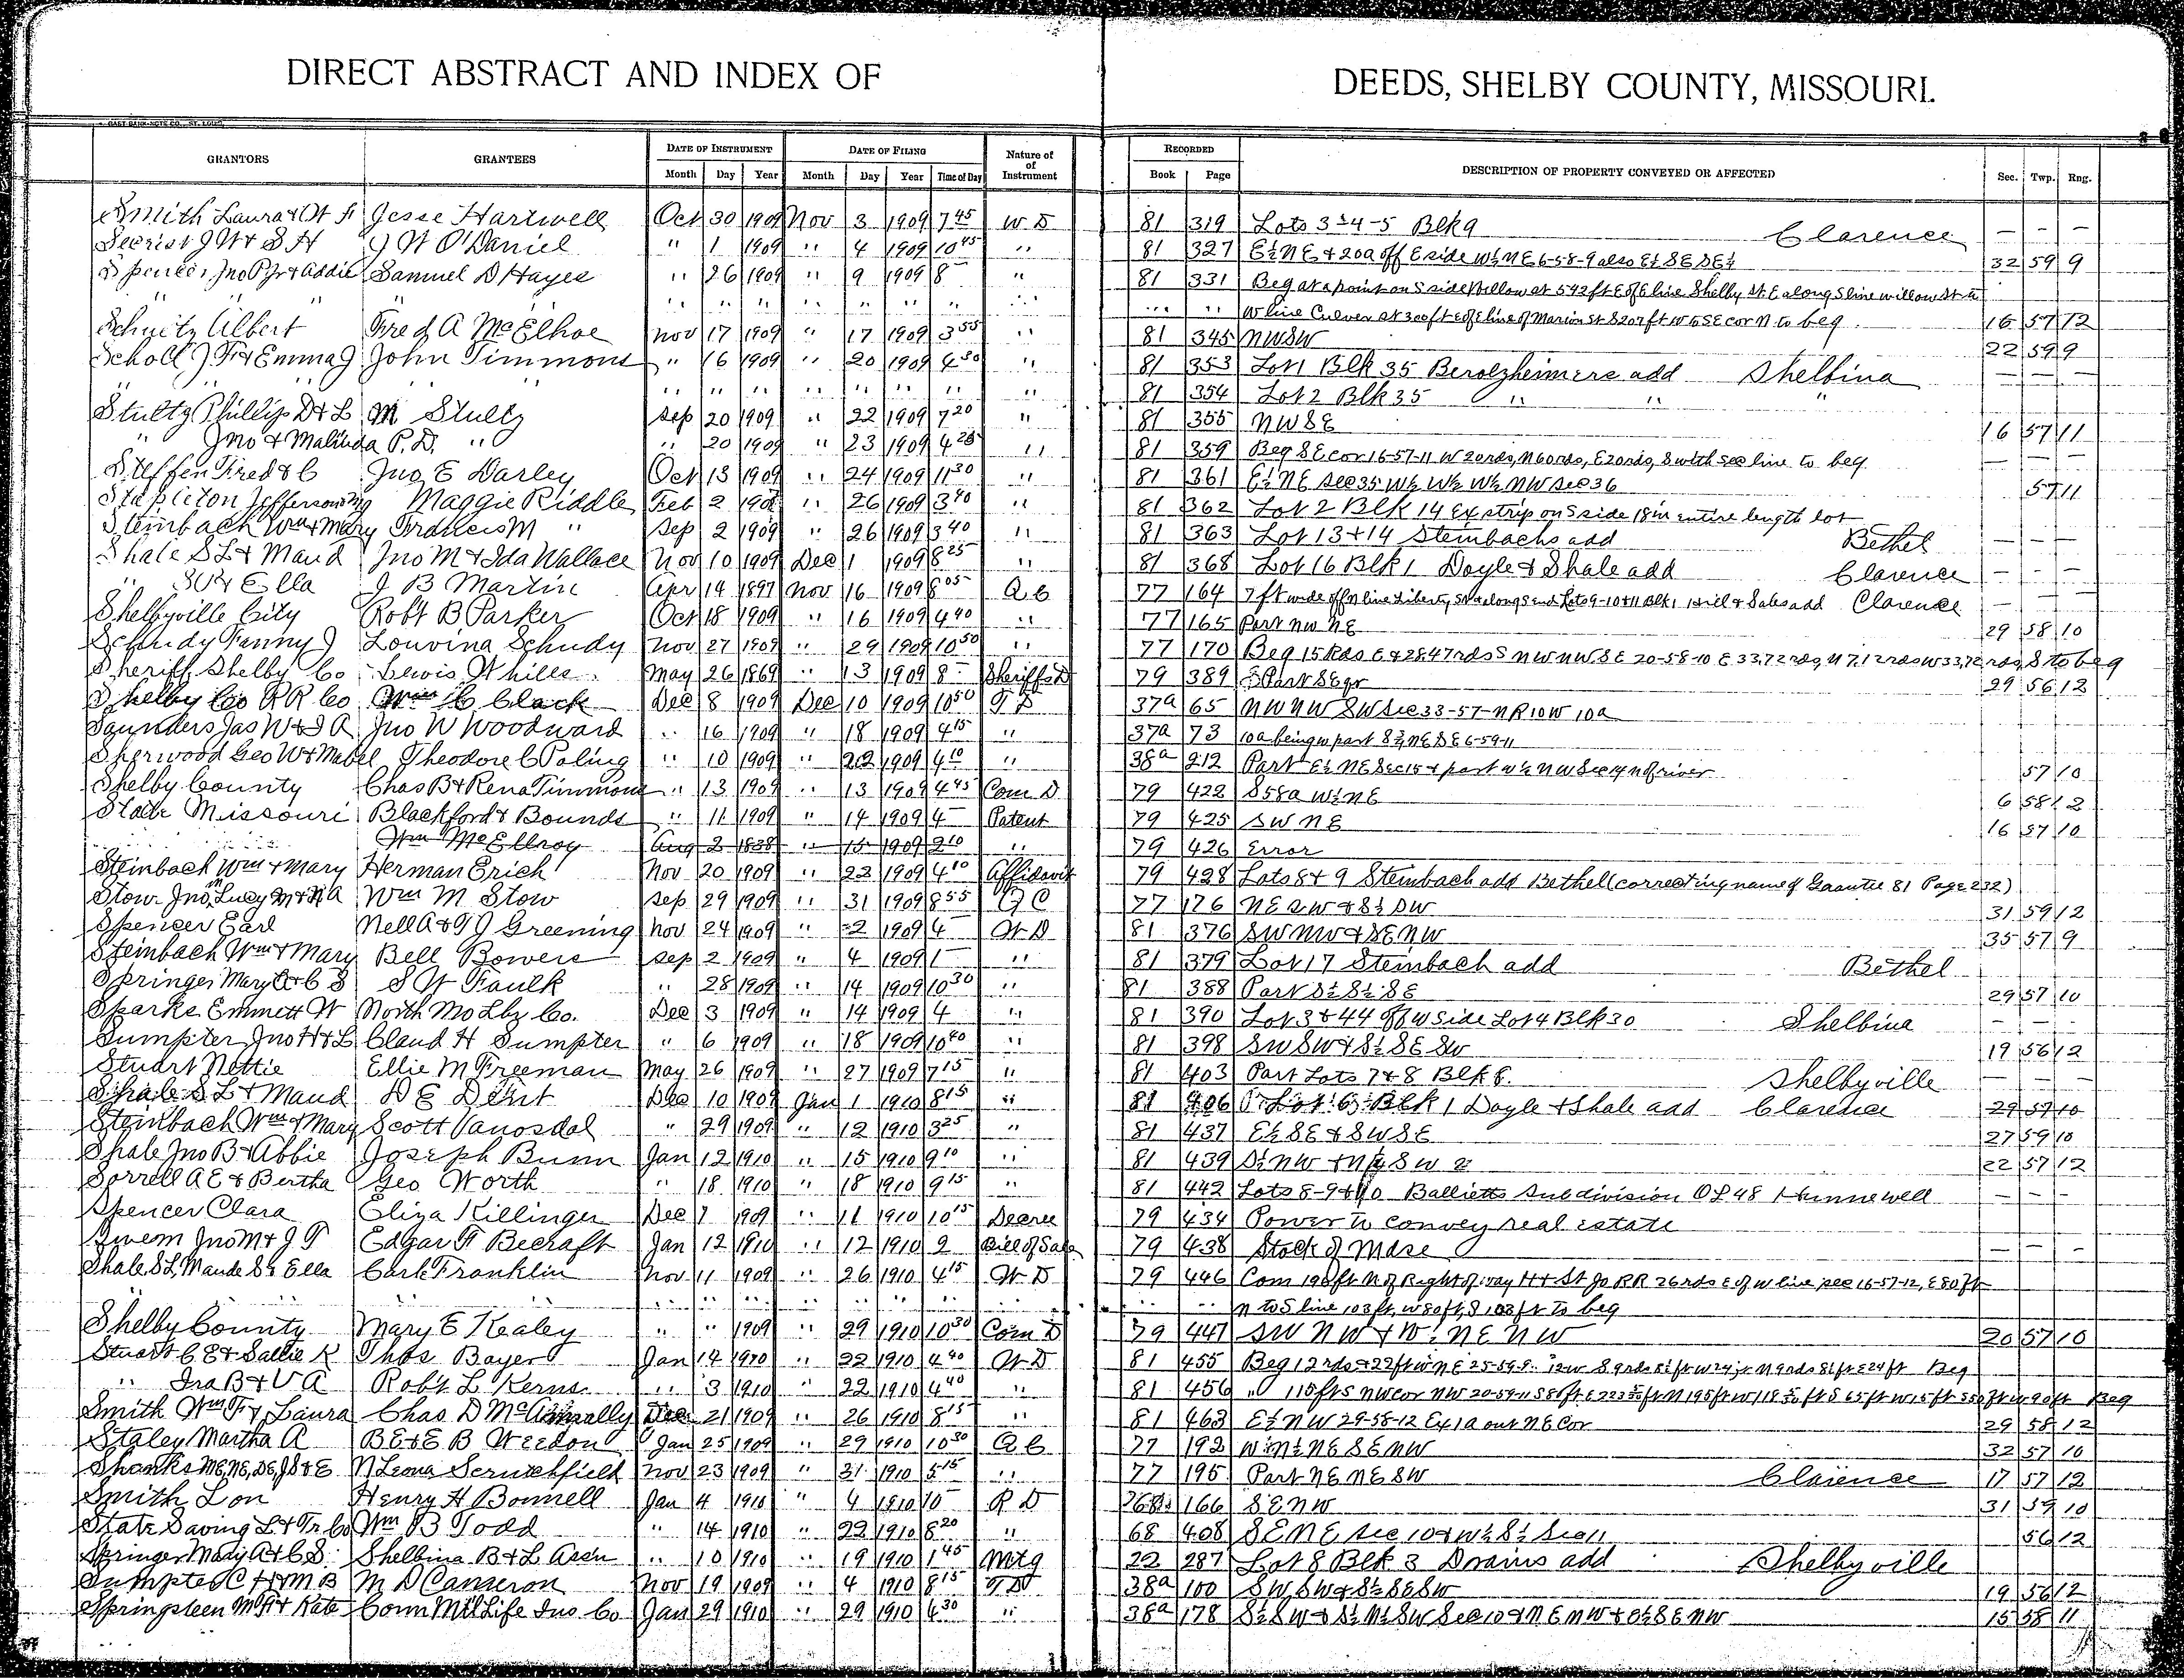 DIRECT ABSTRACT AND INDEX OF DEEDS, SHELBY COUNTY, MISSOURI.
GRANTORS GRANTEES DATE OF INSTRUMENT DATE OF FILING Nature of of Instrument RECORDED DESCRIPTION OF PROPERTY CONVEYED OR AFFECTED Sec. Twp. Rng.
Month Day Year Month Day Year Time of Day Book Page
Smith Laura & W F Jesse Hartwell Oct 30 1909 Nov 3 1909 7 45 W D 81 319 Lots 3-4-5 Blk 9 Clarence — — —
Secrist J W & S H J W O'Daniel " 1 1909 " 4 1909 10 45 " 81 327 E½ NE & 20a off E side W½ NE 6-58-9 also E½ SE SE¼ 32 59 9
Spencer Jno P Jr & Addie Samuel D Hayes " 26 1909 " 9 1909 8 — " 81 331 Beg at a point on S side Willow at 592 ft E of E line Shelby St E along S line Willow St to
" " " " " " " " " " " W line Culver at 300 ft E of E line of Marion St S 207 ft W to SE cor N to beg 16 57 12
Schutz Albert Fred A McElhoe Nov 17 1909 " 17 1909 3 55 " 81 345 NW SW 22 59 9
Scholl J F & Emma J John Timmons " 16 1909 " 20 1909 4 30 " 81 353 Lot 1 Blk 35 Berolzheimers add Shelbina — — —
" " " " " " " " 81 354 Lot 2 Blk 35 " " "
Stultz Phillip D & L M Stultz Sep 20 1909 " 22 1909 7 20 " 81 355 NW SE 16 57 11
" Jno & Malinda P. D. " " 20 1909 " 23 1909 4 25 " 81 359 Beg SE cor 16-57-11 W 20 rds, N 60 rds, E 20 rds, S with sec line to beg — — —
Steffen Fred & C Jno E Darley Oct 13 1909 " 24 1909 11 30 " 81 361 E½ NE sec 35 W½ W½ W½ NW sec 36 57 11
Stapleton Jefferson Maggie Riddle Feb 2 " 26 1909 3 40 " 81 362 Lot 2 Blk 14 Ex strip on S side 18 in entire length lot
Steinbach Wm & Mary Francis M " Sep 2 1909 " 26 1909 3 40 " 81 363 Lot 13 & 14 Steinbachs add Bethel — — —
Shale S L & Maud Jno M & Ida Wallace Nov 10 1909 Dec 1 1909 8 25 " 81 368 Lot 16 Blk 1 Doyle & Shale add Clarence — — —
" & Ella J B Martin Apr 14 1897 Nov 16 1909 8 05 Q C 77 164 7 ft wide off N line Liberty St along S end Lots 9-10 & 11 Blk 1 add Clarence — — —
Shelbyville City Robt B Parker Oct 18 1909 " 16 1909 4 40 " 77 165 Part NW NE 29 58 10
Schudy Fanny J Louvina Schudy Nov 27 1909 " 29 1909 10 50 " 77 170 Beg 15 Rds E & 28.47 rds S NW NW SE 20-58-10 E 33.72 rds, N 7.12 rds W 33.72 rds, S to beg
Sheriff Shelby Co Lewis Whiles May 26 1869 " 13 1909 8 — Sheriffs D 79 389 Part SE qr 29 56 12
Shelby Co RR Co Wm C Clack Dec 8 1909 Dec 10 1909 10 50 T D 37a 65 NW NW SW Sec 33-57-N R 10 W 10a
Saunders Jas W & S A Jno W Woodward " 16 1909 " 18 1909 4 15 " 37a 73 10a being W part NE SE 6-59-11
Sherwood Geo W & Mabel Theodore C Poling " 10 1909 " 22 1909 4 10 " 38a 212 Part E½ NE Sec 15 & part W½ NW Sec 14 N of river 57 10
Shelby County Chas B & Rena Timmons " 13 1909 " 13 1909 4 45 Com D 79 422 S 58a W½ NE 6 58 12
State Missouri Blackford & Bounds " 11 1909 " 14 1909 4 — Patent 79 425 SW NE 16 57 10
" " Wm McEllroy Aug 2 1838 " 15 1909 2 10 " 79 426 Error
Steinbach Wm & Mary Herman Erich Nov 20 1909 " 22 1909 4 10 Affidavit 79 428 Lots 8 & 9 Steinbach add Bethel (correcting name of Grantee 81 Page 232)
Stow Jno, Lucy M & N A Wm M Stow Sep 29 1909 " 31 1909 8 55 Q C 77 176 NE SW & S½ SW 31 59 12
Spencer Earl Nell A & T J Greening Nov 24 1909 " 2 1909 4 — W D 81 376 SW NW & SE NW 35 57 9
Steinbach Wm & Mary Bell Bowers Sep 2 1909 " 4 1909 1 — " 81 379 Lot 17 Steinbach add Bethel
Springer Mary A & C S S W Faulk " 28 1909 " 14 1909 10 30 " 81 388 Part S½ S½ SE 29 57 10
Sparks Emmett W North Mo Lbr Co. Dec 3 1909 " 14 1909 4 " 81 390 Lot 3 & 44 off W side Lot 4 Blk 30 Shelbina — — —
Sumpter Jno H & L Claud H Sumpter " 6 1909 " 18 1909 10 40 " 81 398 SW SW & S½ SE SW 19 56 12
Stuart Nettie Ellie M Freeman May 26 1909 " 27 1909 7 15 " 81 403 Part Lots 7 & 8 Blk 8 Shelbyville
Shale S L & Maud D E Dent Dec 10 1909 Jan 1 1910 8 15 " 81 406 Lot 6 Blk 1 Doyle & Shale add Clarence 29 57 10
Steinbach Wm & Mary Scott Vanosdal " 29 1909 " 12 1910 3 25 " 81 437 E½ SE & SW SE 27 59 10
Shale Jno B & Abbie Joseph Bunn Jan 12 1910 " 15 1910 9 10 " 81 439 S½ NW & N½ SW 22 57 12
Sorrell A E & Bertha Geo Worth " 18 1910 " 18 1910 9 15 " 81 442 Lots 8-9 & 10 Ballietts Subdivision OL 48 Hunnewell — — —
Spencer Clara Eliza Killinger Dec 7 1909 " 11 1910 10 15 Decree 79 434 Power to convey real estate
Swem Jno M & J T Edgar F Becraft Jan 12 1910 " 12 1910 2 Bill of Sale 79 438 Stock of Mdse — — —
Shale S L, Maude S & Ella Carl Franklin Nov 11 1909 " 26 1910 4 15 W D 79 446 Com 196 ft N of Right of way H & St Jo RR 26 rds E of W line sec 16-57-12, E 80 ft
" " " " " " " " " N to S line 103 ft, W 80 ft, S 103 ft to beg
Shelby County Mary E Kealey " " 1909 " 29 1910 10 30 Com D 79 447 SW NW & W½ NE NW 20 57 10
Stuart C E & Sallie K Thos Bayer Jan 14 1910 " 22 1910 4 40 W D 81 455 Beg 12 rds & 22 ft W NE 25-59- Beg
" Ira B & V A Robt L Kerns " 3 1910 " 22 1910 4 40 " 81 456 " 115 ft S NW cor NW 20-59-11 S 80 ft E ft N 195 ft W ft S 65 ft W 15 ft ft W 90 ft Beg
Smith Wm F & Laura Chas D McAnnally Dec 21 1909 " 26 1910 8 15 " 81 463 E½ NW 29-58-12 Ex 1a out NE Cor 29 58 12
Staley Martha A B E & E B Weedon Jan 25 1909 " 29 1910 10 30 Q C 77 192 W½ N½ NE SE NW 32 57 10
Shanks M E, N E, D E, J S & E N Leona Scrutchfield Nov 23 1909 " 31 1910 5 15 " 77 195 Part NE NE SW Clarence 17 57 12
Smith Lon Henry H Bonnell Jan 4 1910 " 4 1910 10 — R D 166 SE NW 31 59 10
State Saving L & Tr Co Wm B Todd " 14 1910 " 22 1910 8 20 " 68 408 SE NE sec 10 & W½ S½ Sec 11 56 12
Springer Mary A & C S Shelbina B & L Assn " 10 1910 " 19 1910 1 45 Mtg 22 287 Lot 8 Blk 3 Drains add Shelbyville
Sumpter C H & M B M D Cameron Nov 19 1909 " 4 1910 8 15 T D 38a 100 SW SW & S½ SE SW 19 56 12
Springsteen M & Kate Conn Mut Life Ins Co Jan 29 1910 " 29 1910 4 30 " 38a 178 S½ SW & S½ N½ SW Sec 10 & NE NW & E½ SE NW 15 58 11